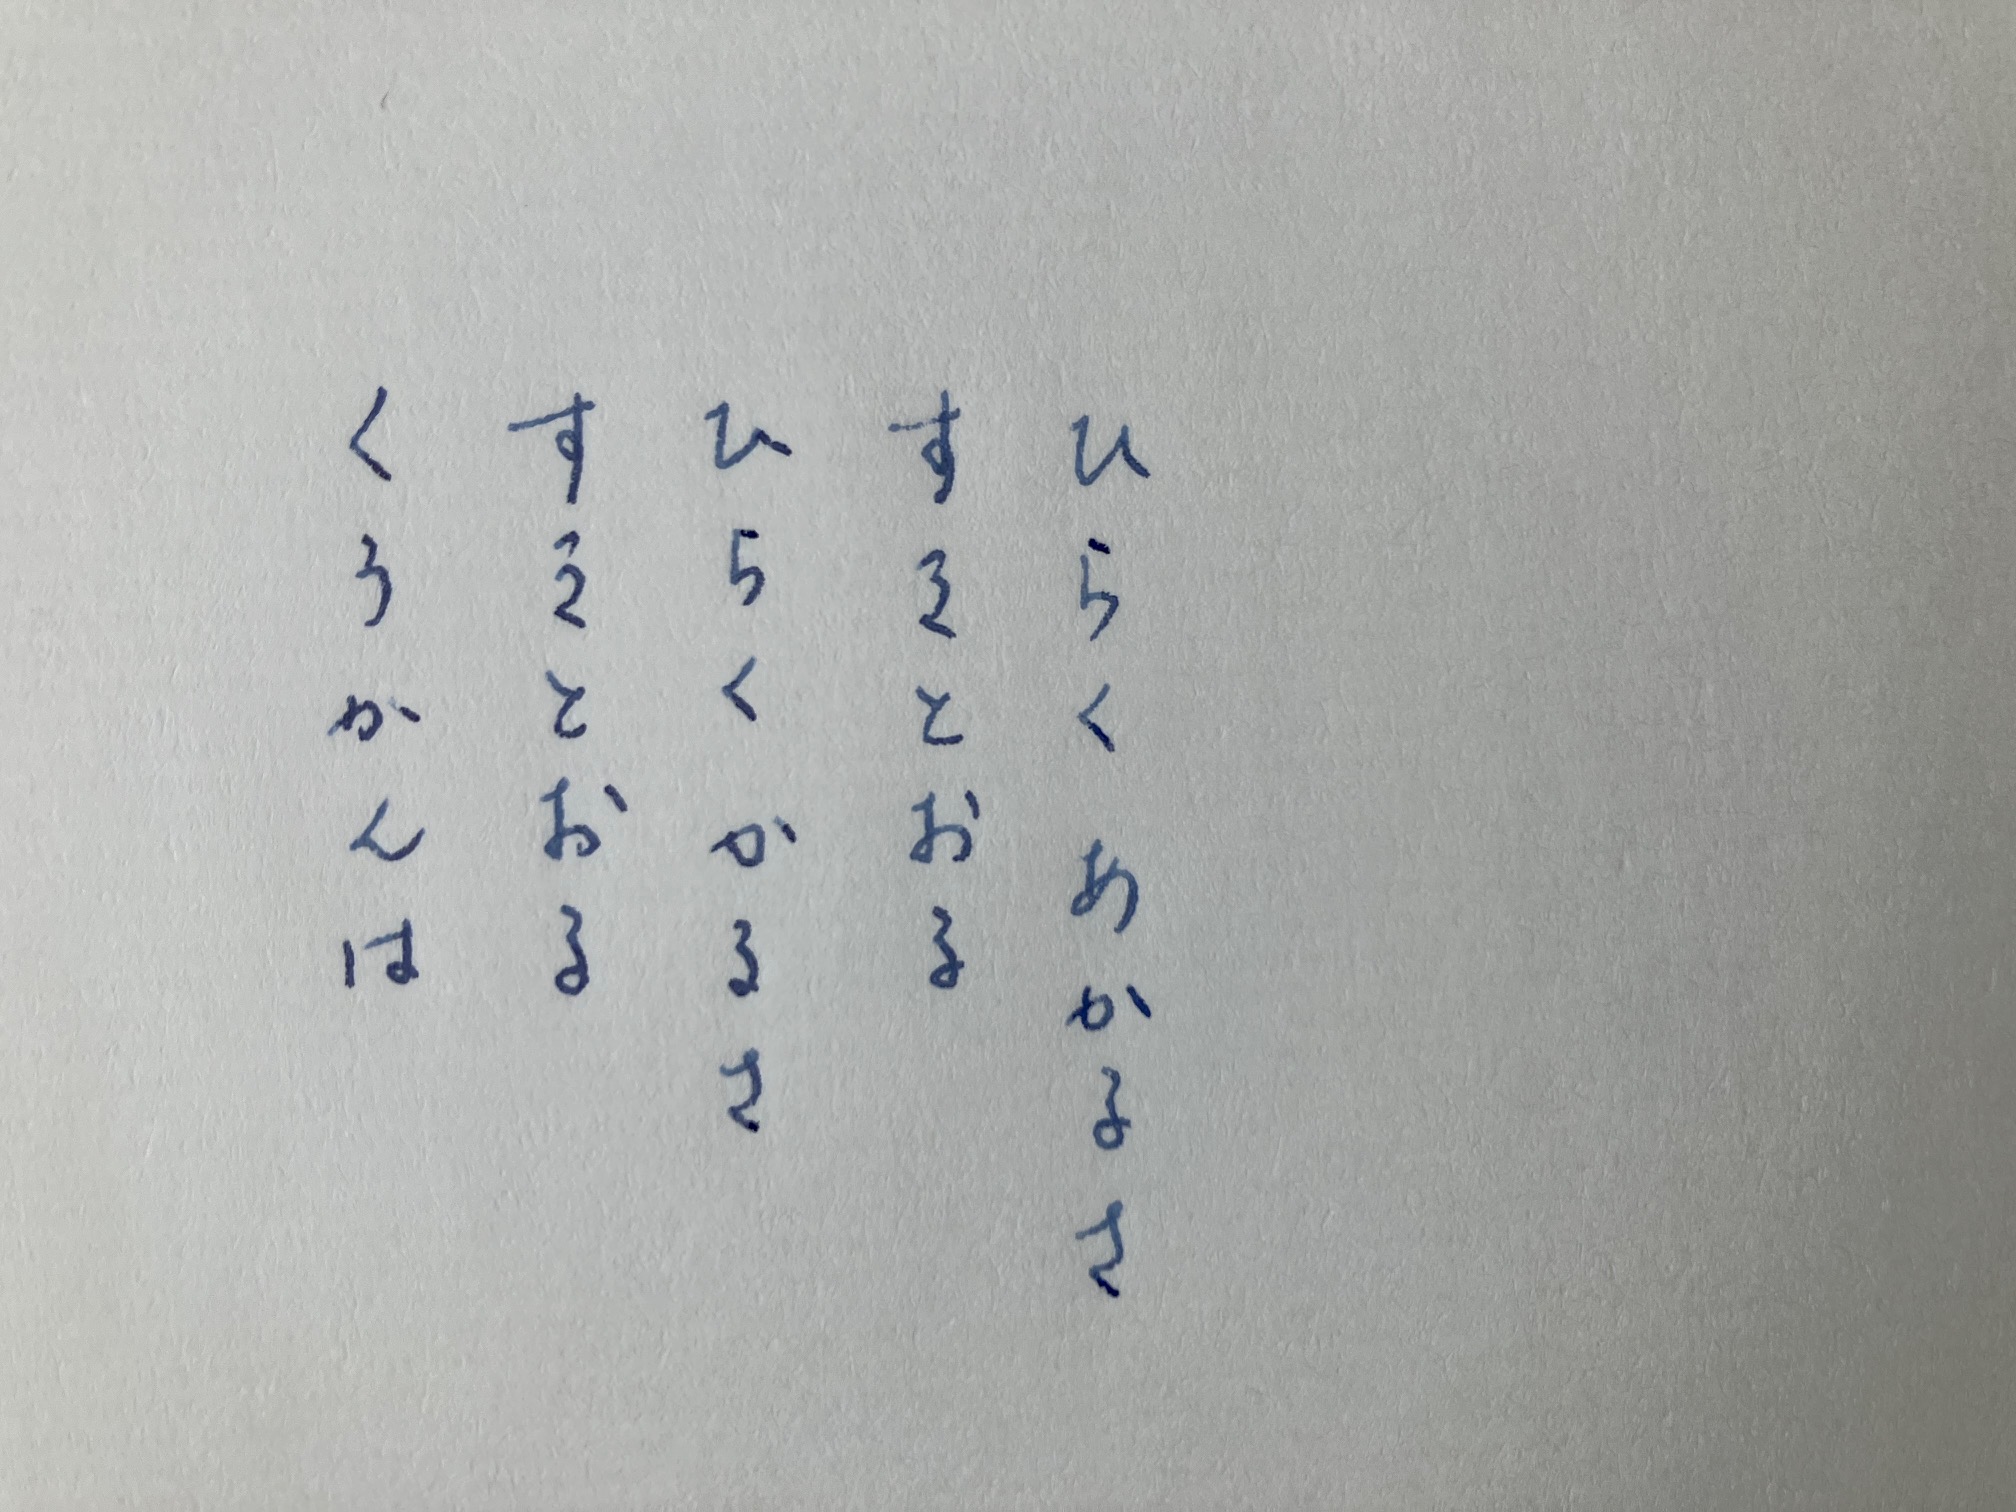 ひらくあかるさ
すきとおる
ひらくかるさ
すきとおる
くうかんは